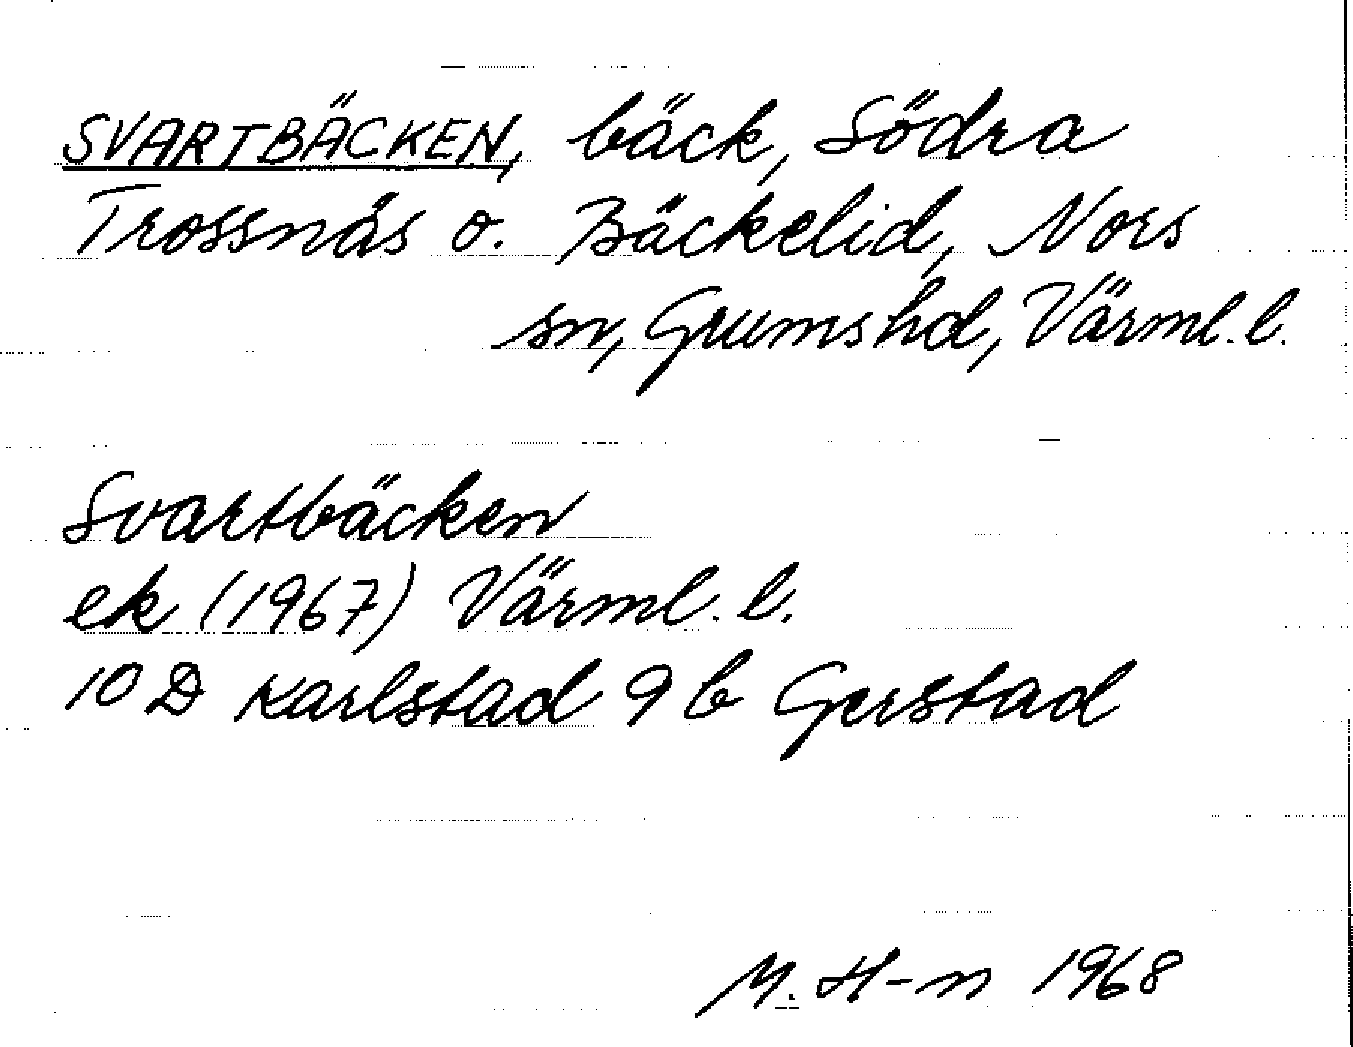 SVARTBÄCKEN, bäck, Södra
Trossnäs o. Bäckelid, Nors
sn, Grums hd, Värml. l.
Svartbäcken
ek (1967) Värml. l.
10 D Karlstad 9 b Gerstad
M. H-n 1968